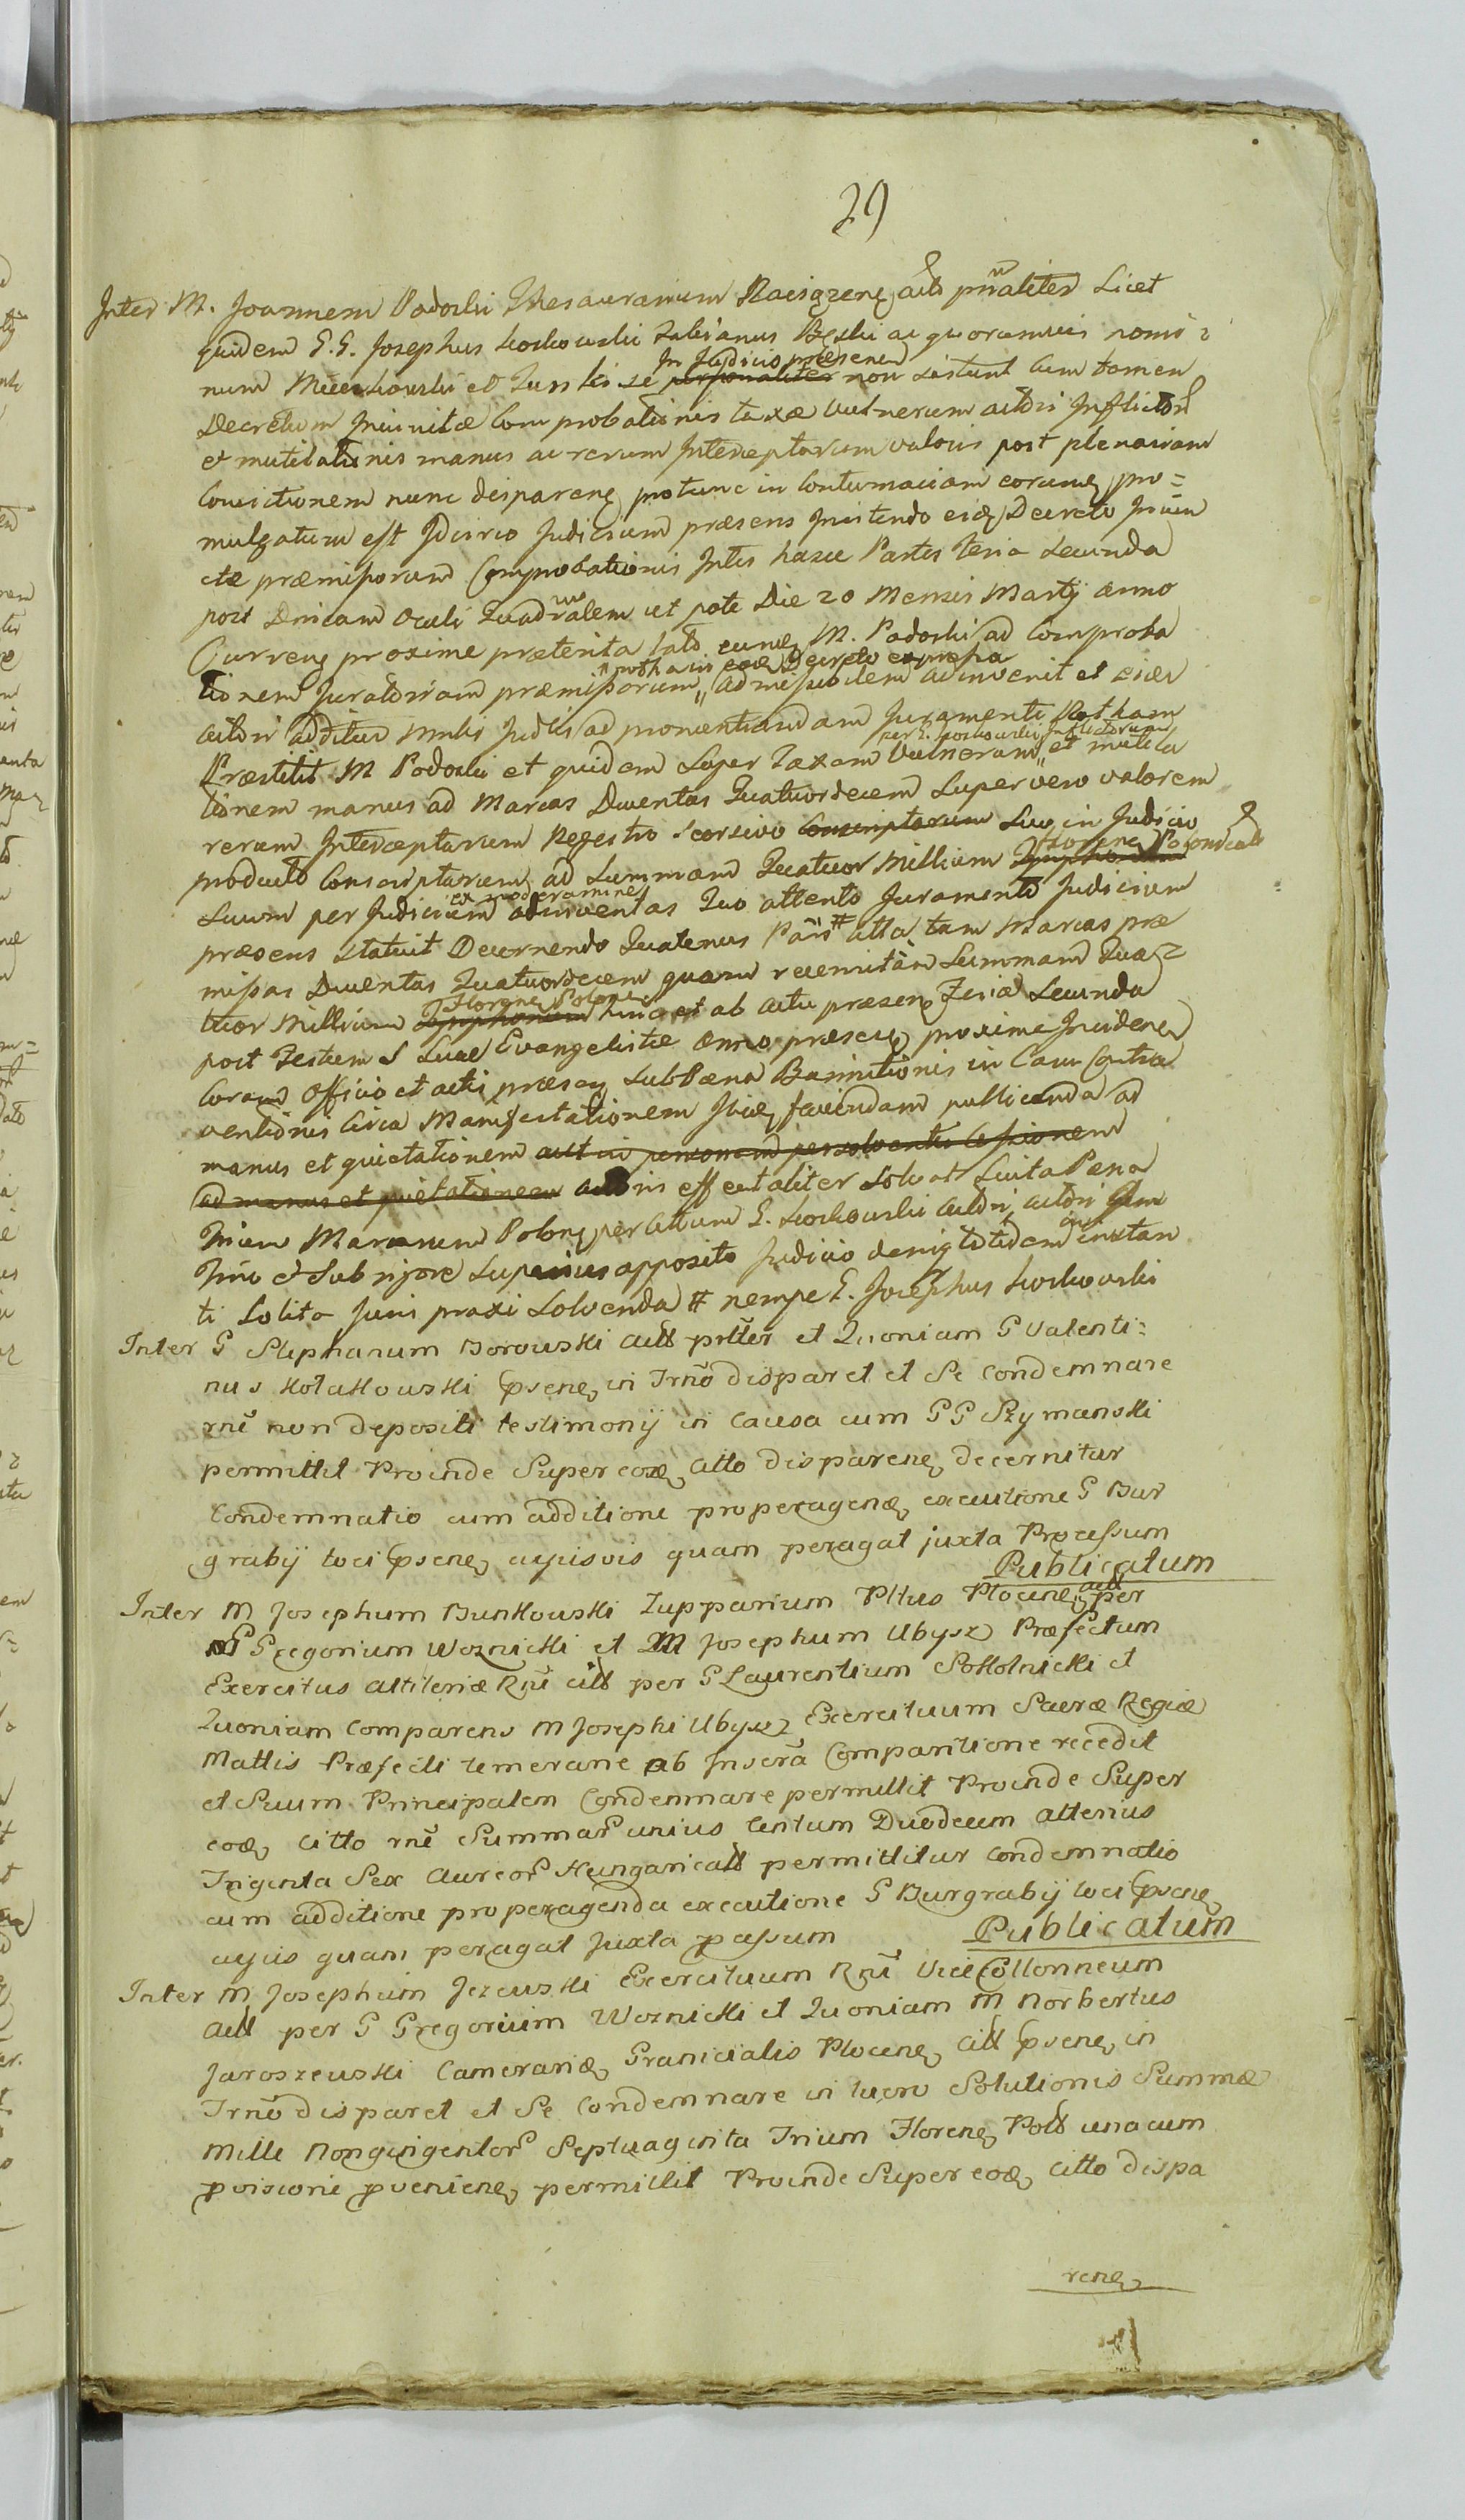 29
Inter M. Joannem Podoski Thesaurarium Raciązen actō pñaliter Licet
quidem G.G. Josephus Łoskowski Fabianus Bęski ac quoramvis nomi
num Mierzkowski et se In Judicio præsenn personaliter non sistunt cum tamen
Decretum Iniunctæ Comprobationis taxæ vulnerum actōri Inflictōr
et mutilationis manus ac rerum Interceptarum valoris post plenariam
Convictionem nunc disparen protunc in Contumaciam eorund pro=
mulgatum est Idcirco Judicium præsens Insistendo eid Decreto Iniun
ctæ præmissorum Comprobationis Inter hasce Partes Feria Secunda
post Dnicam Oculi Quadralem ut pote Die 20 Mensis Martij anno
Curren proxime præterita latō eund M. Podoski ad Comproba
tionem Juratoriam præmissorum, rotha in eod Decreto expressa admissibilem adinvenit et eid
actōri additur Mnlis Judtis ad pronuntiandam Juramenti Rotham
Præstitit M Podoski et quidem Super Taxam Vulnerum, per G. Łoskowski Inflictorum et mutila
tionem manus ad Marcas Ducentas Quatuordecem Super vero valorem
rerum Interceptarum Regestro seorsivo conscriptarum Suo in Judicio
producto Conscriptarum ad Summam Quatuor Millium Floren Polonicalō
Suum per Judicium ex moderamine adinventas Quo attento Juramento Judicium
præsens statuit Decernendo Quatenus Pars # citta tam Marcas præ
missas Ducentas Quatuordecem quam recensitam Summam Qua
tuor Millium Floren Polon hinc et ab actu præsen Feria Secunda
post Festum S Lucæ Evangelistæ anno præsen proxime Inciden
Coram Officio et actis præsen Sub Pæna Bannitionis in Casu Contra
ventionis Circa Manifestationem Ibid faciendam publicanda ad
manus et quietationem aut in personam persolventis Cessionem
ad manus et quietationem actōris effectaliter Solvat Luita Pena
Trium Marcarum Polon per cittum G. Łoskowski actōri, actōri Gem
Ino et Sub rigore Superius apposito Judicio deniq totidem instan
ti Solito Juris praxi Solvenda # nempe G. Josephus Łoskowski
Inter G Stephanum Borowski actō pnter et Quoniam G Valenti=
nus Kołakowski Cpsen in Trnō disparet et Se Condemnare
rnē non depositi testimonij in Causa cum G G Szymanski
permittit Proinde Super eod citto disparen decernitur
Condemnatio cum additione properagend executione G Bur
grabij loci Cpsen cujusvis quam peragat juxta Processum
Publicatum
Inter M Josephum Bunkowski Zupparium Pltus Plocen, actō per
G Gregorium Woznicki et M Josephum Ubysz Præfectum
Exercitus altileriæ Rni citō per G Laurentium Sokolnicki et
Quoniam Comparens M Josephi Ubysz Exercituum Sacræ Regiæ
Mattis Præfecti temerarie ab Inscrā Comparitione recedit
et Suum Principalem Condemnare permittit Proinde Super
eod, citto rnē Summar unius Centum Duodecem alterius
Triginta Sex aureor Hungaricalō permittitur Condemnatio
cum additione properagenda executione G Burgrabij loci Cpsen
cujus quam peragat Juxta passum
Publicatum
Inter M Josephum Jezewski Exercituum Rni ViceCollonneum
actō per G Gregorium Woznicki et Quoniam M Norbertus
Jaroszewski Camerariō Granicialis Plocen citō Cpsen in
Trnō disparet et Se Condemnare in lucro Solutionis Summæ
Mille Nongingentor Septuaginta Trium Floren Polō unacum
pvisione pvenien permittit Proinde Super eod citto dispa
ren